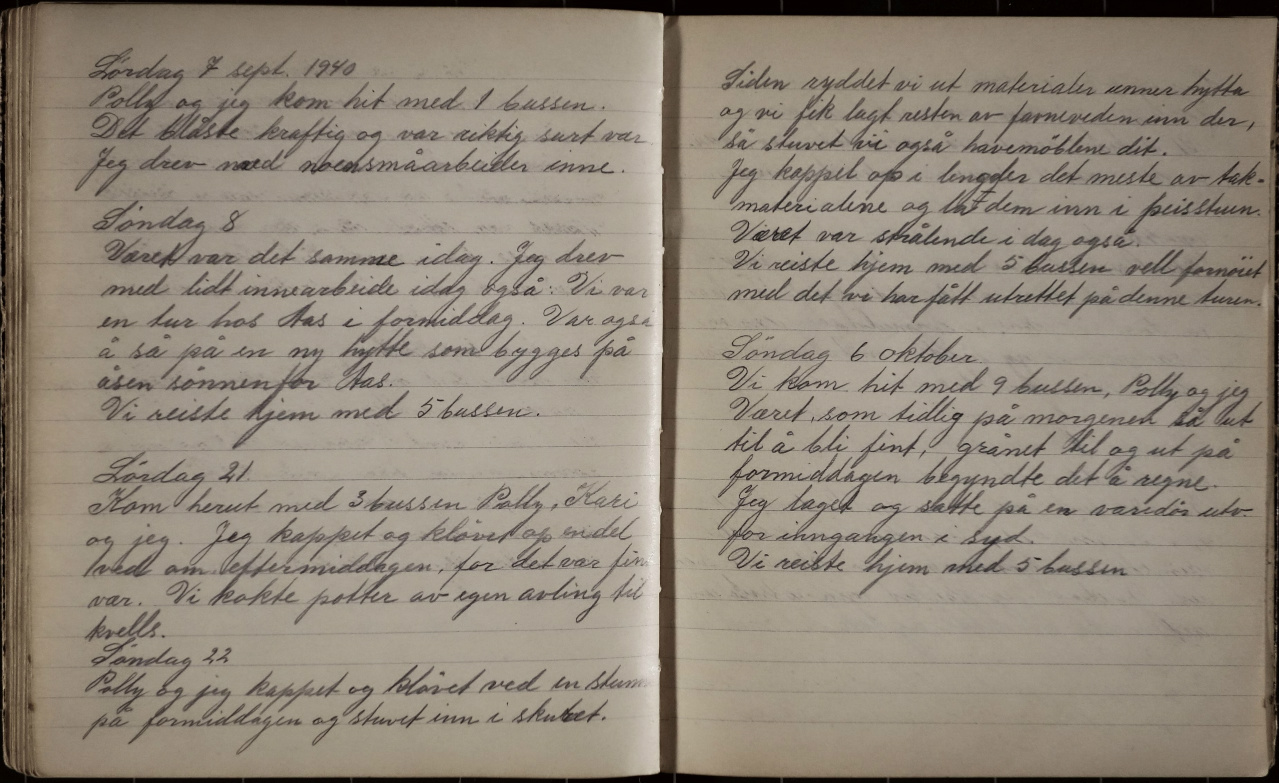 Lørdag 7 sept. 1940
Polly og jeg kom hit med 1 bussen.
Det blåste kraftig og var riktig surt vær
Jeg drev med noensmåarbeider inne.
Søndag 8
Været var det samme idag. Jeg drev
med lidt innearbeide idag også. Vi var
en tur hos Aas i formiddag. Var også
å så på en ny hytte som bygges på
åsen sønnenfor Aas.
Vi reiste hjem med 5 bussen.
Lørdag 21.
Kom herut med 3 bussen Polly, Kari
og jeg. Jeg kappet og kløvet op en del
ved om eftermiddagen, for det var fin
vær. Vi kokte potter av egen avling til
kvells.
Søndag 22
Polly og jeg kappet og kløvet ved en stunn
på formiddagen og stuvet inn i skuret.
Siden ryddet vi ut materialer unner hytta
og vi fik lagt resten av favneveden inn der,
så stuvet vi også havemöblene dit.
Jeg kappet op i lengder det meste av tak-
materialene og la dem inn i peisstuen.
Været var strålende i dag også
Vi reiste hjem med 5 bussen vell fornöiet
med det vi har fått utrettet på denne turen.
Søndag 6 oktober
Vi kom hit med 9 bussen, Polly og jeg
Været, som tidlig på morgenen så ut
til å bli fint, grånet til og ut på
formiddagen begyndte det å regne.
Jeg laget og satte på en varedør utv
for inngangen i syd.
Vi reiste hjem med 5 bussen